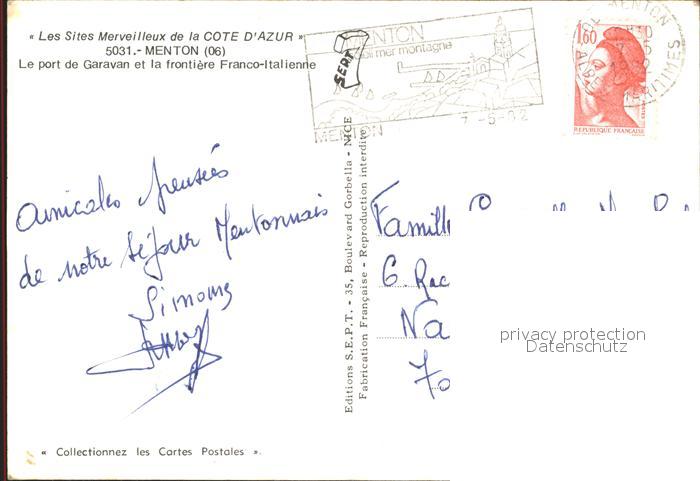 « Les Sites Merveilleux de la COTE D'AZUR »
5031.- MENTON (06)
Le port de Garavan et la frontière Franco-Italienne
MENTON
soleil mer montagne
MENTON
7-5-82
1,60
REPUBLIQUE FRANÇAISE
MENTON
MARITIMES
Amicales pensées
de notre séjour Mentonnais
Simone
Editions S.E.P.T. - 35, Boulevard Gorbella - NICE
Fabrication Française - Reproduction interdite
Famill
6. Rac
Na
70
privacy protection
Datenschutz
« Collectionnez les Cartes Postales ».